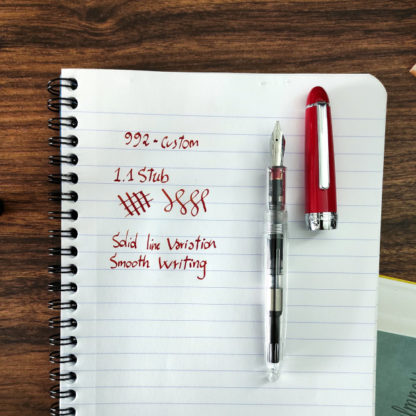 992 - Custom
1.1 Stub
Solid line Variation
Smooth Writing